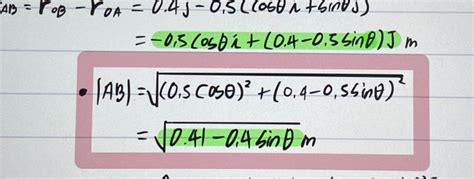 AB = r_OB - r_OA = 0.4j - 0.5(Cosθ i + Sinθ j)
= -0.5 Cosθ i + (0.4 - 0.5 Sinθ) J m
• |AB| = √((0.5 Cosθ)² + (0.4 - 0.5 Sinθ)²)
= √(0.41 - 0.4 Sinθ) m